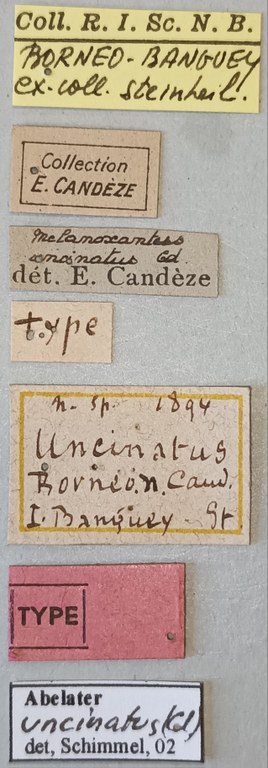 Coll. R. I. Sc. N. B.
BORNEO-BANGUEY
ex-coll. Steinheil.
Collection
E. CANDÈZE
Melanoxanthus
uncinatus Cd.
dét. E. Candèze
type
n. sp. 1894
Uncinatus
Borneo.n. Cand.
I. Banguey - St
TYPE
Abelater
uncinatus (Cd)
det, Schimmel, 02